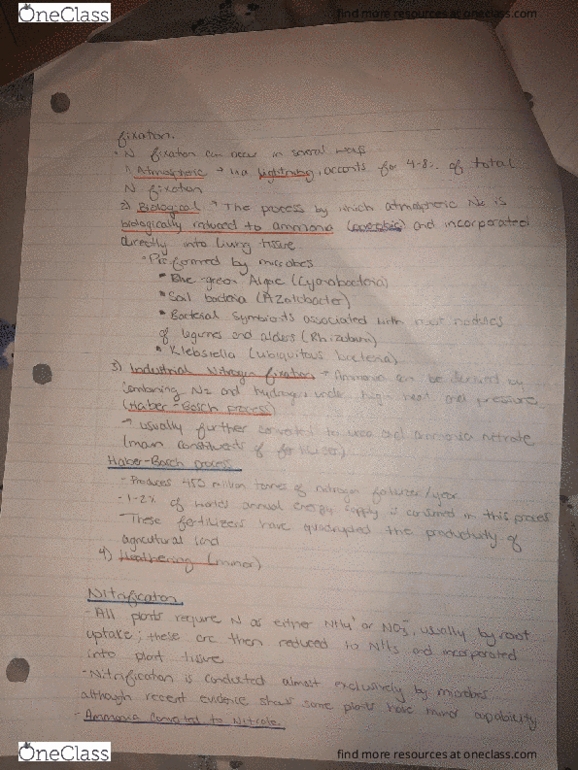 OneClass
find more resources at oneclass.com
fixation.
· N fixation can occur in several ways
1) Atmospheric → via lightning, accounts for 4-8% of total
N fixation
2) Biological → The process by which atmospheric N2 is
biologically reduced to ammonia (aerobic) and incorporated
directly into living tissue
· Performed by microbes
▪ Blue-green Algae (Cyanobacteria)
▪ Soil bacteria (Azotobacter)
▪ Bacterial symbionts associated with root nodules
of legumes and alders (Rhizobium)
▪ Klebsiella (ubiquitous bacteria)
3) Industrial Nitrogen fixation → Ammonia can be derived by
combining N2 and hydrogen under high heat and pressure
(Haber-Bosch process)
→ usually further converted to urea and ammonia nitrate
(main constituents of fertilizer)
Haber-Bosch process
- Produces 450 million tonnes of nitrogen fertilizer/year
- 1-2% of world's annual energy supply is consumed in this process
- These fertilizers have quadrupled the productivity of
agricultural land
4) Weathering (minor)
Nitrification
- All plants require N as either NH4+ or NO3-, usually by root
uptake; these are then reduced to NH3 and incorporated
into plant tissue
- Nitrification is conducted almost exclusively by microbes
although recent evidence shows some plants have minor capability
- Ammonia converted to Nitrate.
OneClass
find more resources at oneclass.com